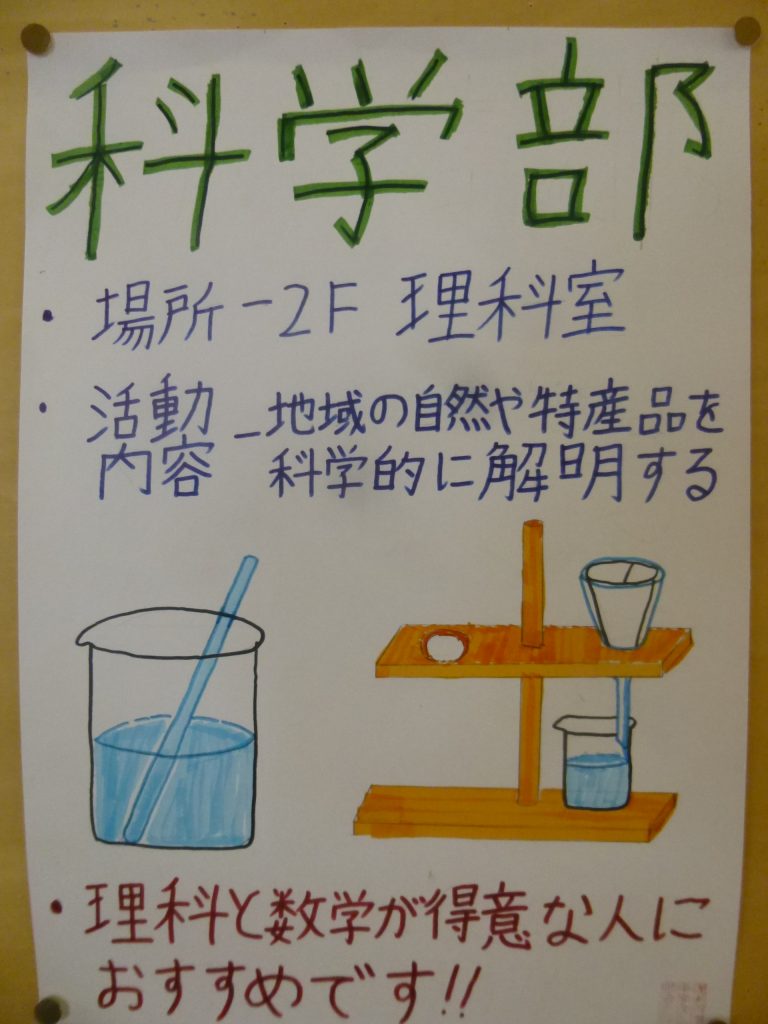 科学部
・場所-2F 理科室
・活動内容-地域の自然や特産品を
科学的に解明する
・理科と数学が得意な人に
おすすめです!!